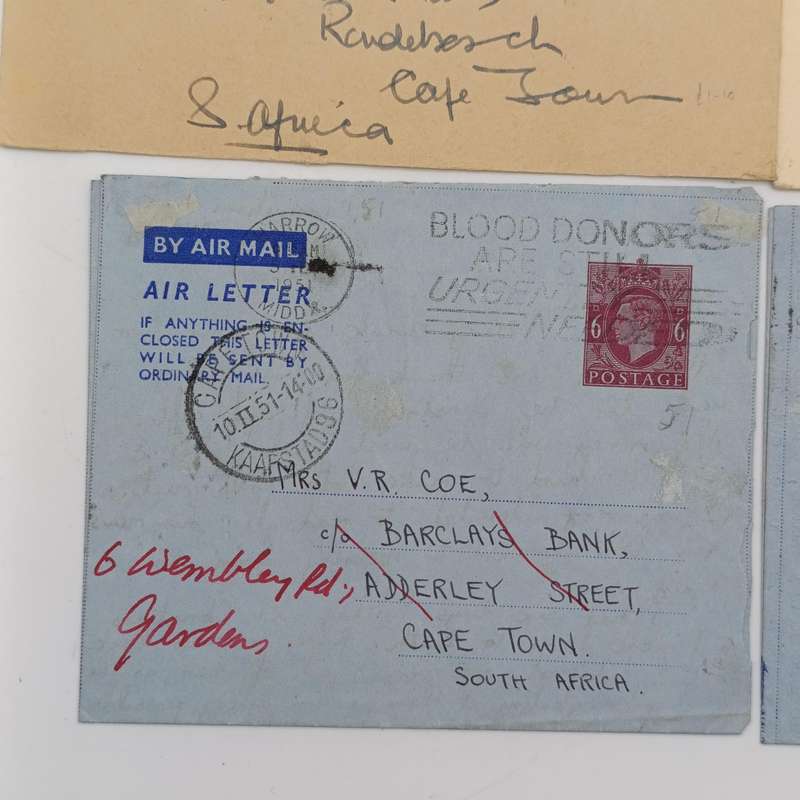 Rondebosch
Cape Town
S. Africa
BY AIR MAIL
AIR LETTER
IF ANYTHING IS EN-
CLOSED THIS LETTER
WILL BE SENT BY
ORDINARY MAIL
HARROW
1951
MIDDX.
BLOOD DONORS
ARE STILL
URGENTLY
NEEDED
6 6
POSTAGE
51
51
10.II.51-14-00
KAAPSTAD 96
MRS V.R. COE,
c/o BARCLAYS BANK,
ADDERLEY STREET,
CAPE TOWN.
SOUTH AFRICA.
6 Wembley Rd.,
Gardens.